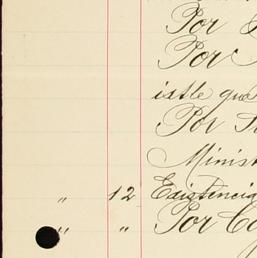 Por
Por
istle que
Por
Minist
" 12 Existencia
" " Por Co